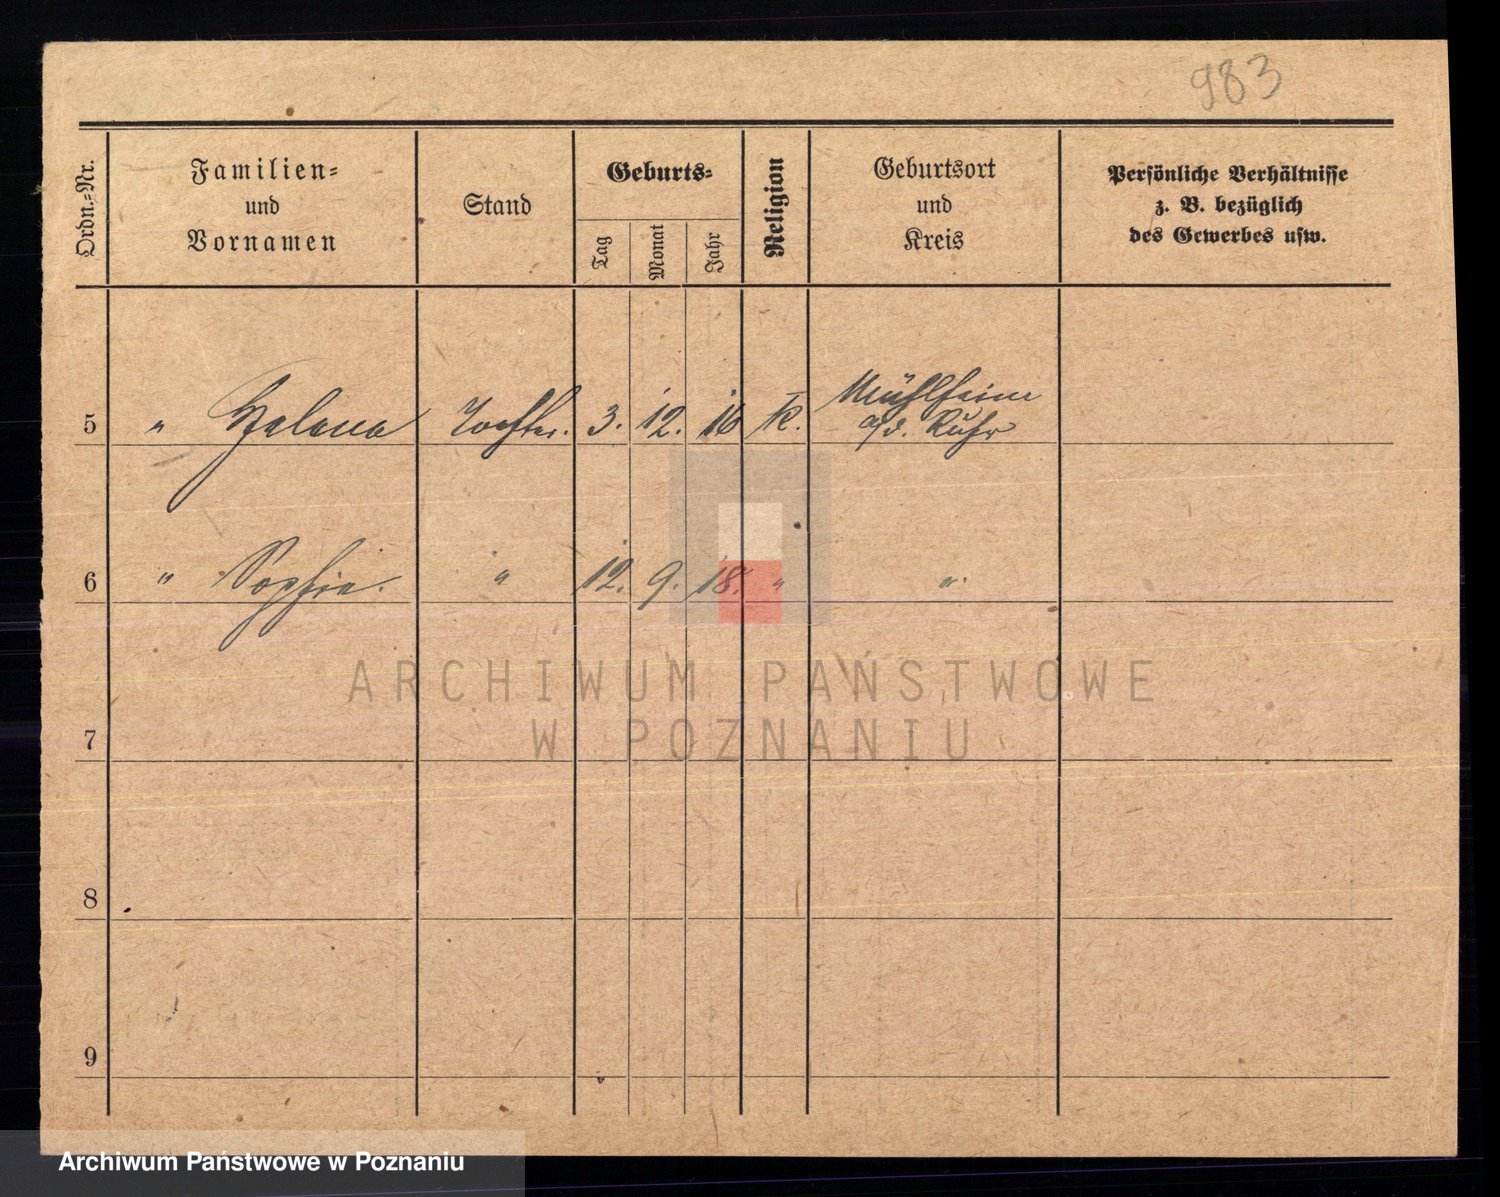 983
Ordn.=Nr.
Familien=
und
Vornamen
Stand
Geburts=
Tag
Monat
Jahr
Religion
Geburtsort
und
Kreis
Persönliche Verhältnisse
z. B. bezüglich
des Gewerbes usw.
5 " Helena Tochter. 3. 12. 16 K. Mühlheim
a/d. Ruhr
6 " Sophie. " 12. 9. 18. " "
ARCHIWUM PAŃSTWOWE
W POZNANIU
7
8
9
Archiwum Państwowe w Poznaniu